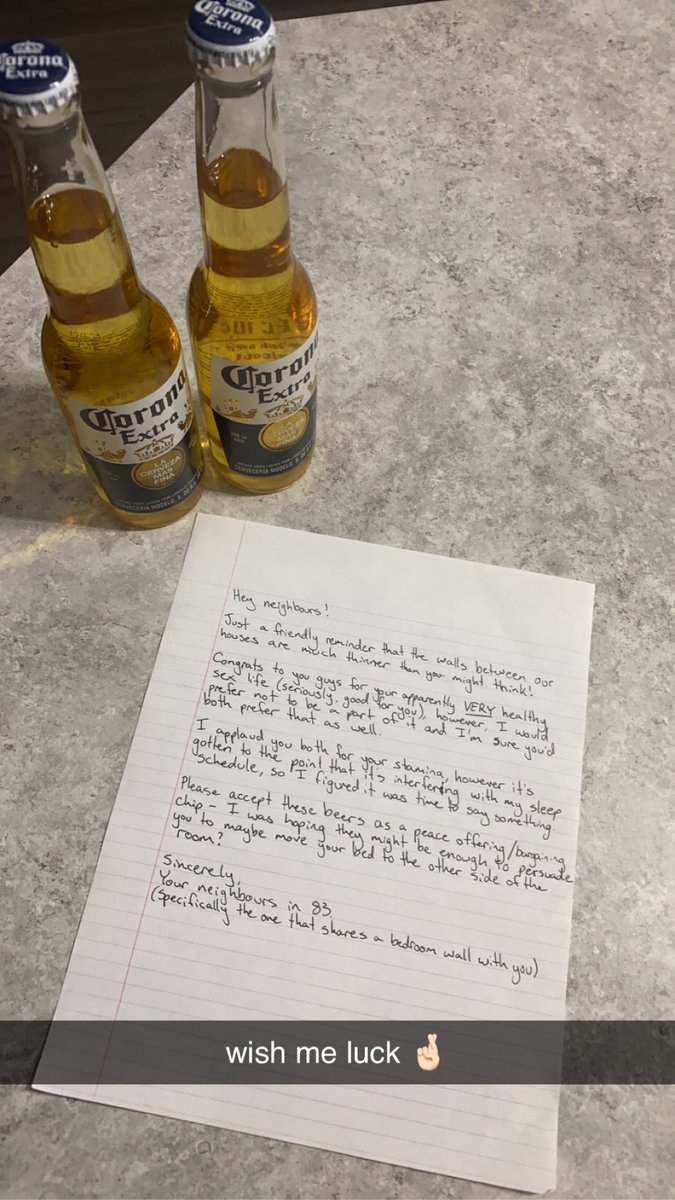 Corona
Extra
Corona
Extra
Corona
Extra
LA
CERVEZA
MAS
FINA
CERVECERIA MODELO, S. DE R.
Corona
Extra
LA
CERVEZA
MAS
FINA
CERVECERIA MODELO, S. DE
Hey neighbours!
Just a friendly reminder that the walls between our
houses are much thinner than you might think!
Congrats to you guys for your apparently VERY healthy
sex life (seriously, good for you), however, I would
prefer not to be a part of it and I'm sure you'd
both prefer that as well.
I applaud you both for your stamina, however it's
gotten to the point that it's interfering with my sleep
schedule, so I figured it was time to say something.
Please accept these beers as a peace offering/bargaining
chip - I was hoping they might be enough to persuade
you to maybe move your bed to the other side of the
room?
Sincerely,
Your neighbours in 83
(Specifically the one that shares a bedroom wall with you)
wish me luck 🤞🏻